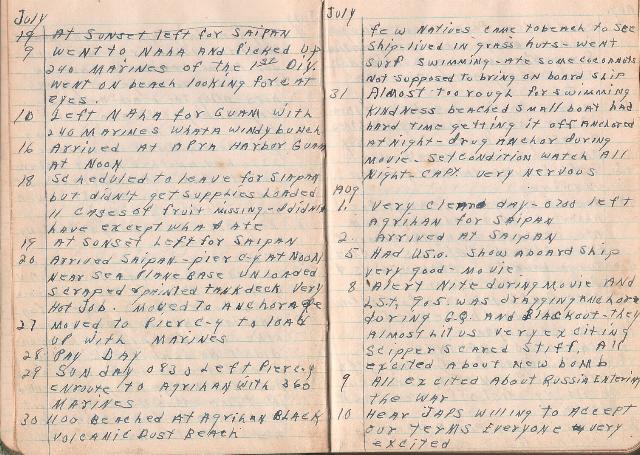 July
19 At Sunset left for SAIPAN
9 Went to NAHA and Picked up
240 Marines of the 1st Div.
went on beach looking for cat
eyes.
10 Left NAHA for GUAM with
240 Marines what a windy bunch
16 Arrived at APRA Harbor Guam
at Noon
18 Scheduled to leave for SIAPAN
but didn't get supplies loaded
11 cases of fruit missing - didnt
have except what I ate
19 At Sunset left for SAIPAN
20 Arrived Saipan - pier C-4 at Noon
Near Sea Plane Base unloaded
scraped & painted tank deck very
Hot Job. Moved to Anchorage
27 Moved to Pier C-4 to load
up with Marines
28 Pay Day
29 Sunday 0830 Left Pier C-4
enroute to Agrihan with 360
Marines
30 1100 Beached at Agrihan Black
Volcanic Dust Beach
July
few Natives came to beach to see
ship - lived in grass huts - went
surf swimming - ate some coconuts
Not supposed to bring on board ship
31 Almost too rough for swimming
Kindness beached small boat had
hard time getting it off Anchored
at Night - drug anchor during
movie - set condition watch all
Night - Capt. very nervous
Aug
1. very clear day - 0700 left
Agrihan for Saipan
2. Arrived at Saipan
5 Had U.S.O. show aboard ship
very good - movie
8 Alert Nite during movie And
L.S.T. 905 was dragging anchor
during G.Q. and Blackout - they
Almost hit us very exciting
Skipper scared stiff. All
excited about new bomb
9 All excited about Russia Entering
the war
10 Hear JAPS willing to accept
our terms Everyone very
excited